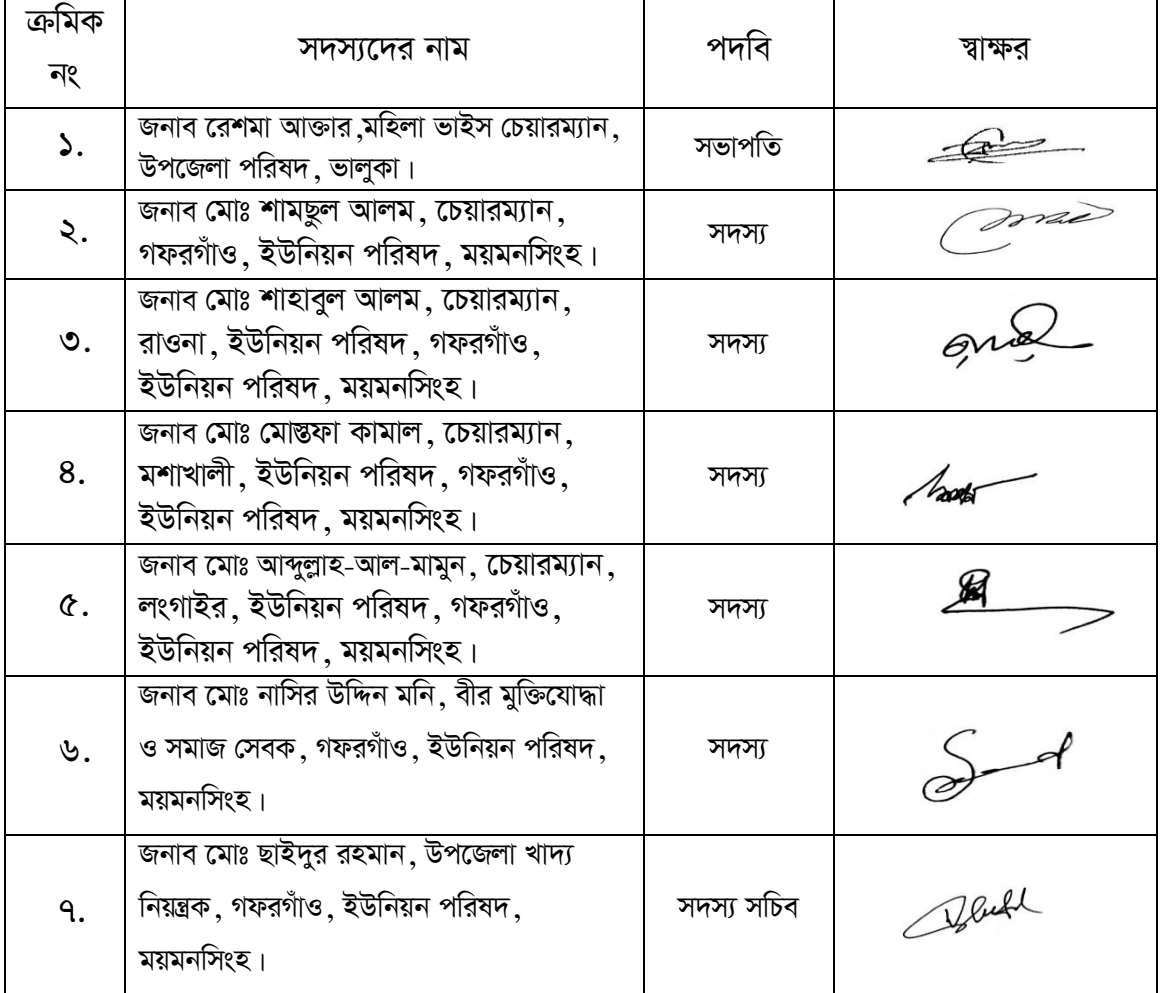 ক্রমিক নং সদস্যদের নাম পদবি স্বাক্ষর
১. জনাব রেশমা আক্তার,মহিলা ভাইস চেয়ারম্যান, সভাপতি
উপজেলা পরিষদ, ভালুকা।
২. জনাব মোঃ শামছুল আলম, চেয়ারম্যান, সদস্য
গফরগাঁও, ইউনিয়ন পরিষদ, ময়মনসিংহ।
৩. জনাব মোঃ শাহাবুল আলম, চেয়ারম্যান, সদস্য
রাওনা, ইউনিয়ন পরিষদ, গফরগাঁও,
ইউনিয়ন পরিষদ, ময়মনসিংহ।
৪. জনাব মোঃ মোস্তফা কামাল, চেয়ারম্যান, সদস্য
মশাখালী, ইউনিয়ন পরিষদ, গফরগাঁও,
ইউনিয়ন পরিষদ, ময়মনসিংহ।
৫. জনাব মোঃ আব্দুল্লাহ-আল-মামুন, চেয়ারম্যান, সদস্য
লংগাইর, ইউনিয়ন পরিষদ, গফরগাঁও,
ইউনিয়ন পরিষদ, ময়মনসিংহ।
৬. জনাব মোঃ নাসির উদ্দিন মনি, বীর মুক্তিযোদ্ধা সদস্য
ও সমাজ সেবক, গফরগাঁও, ইউনিয়ন পরিষদ,
ময়মনসিংহ।
৭. জনাব মোঃ ছাইদুর রহমান, উপজেলা খাদ্য সদস্য সচিব
নিয়ন্ত্রক, গফরগাঁও, ইউনিয়ন পরিষদ,
ময়মনসিংহ।